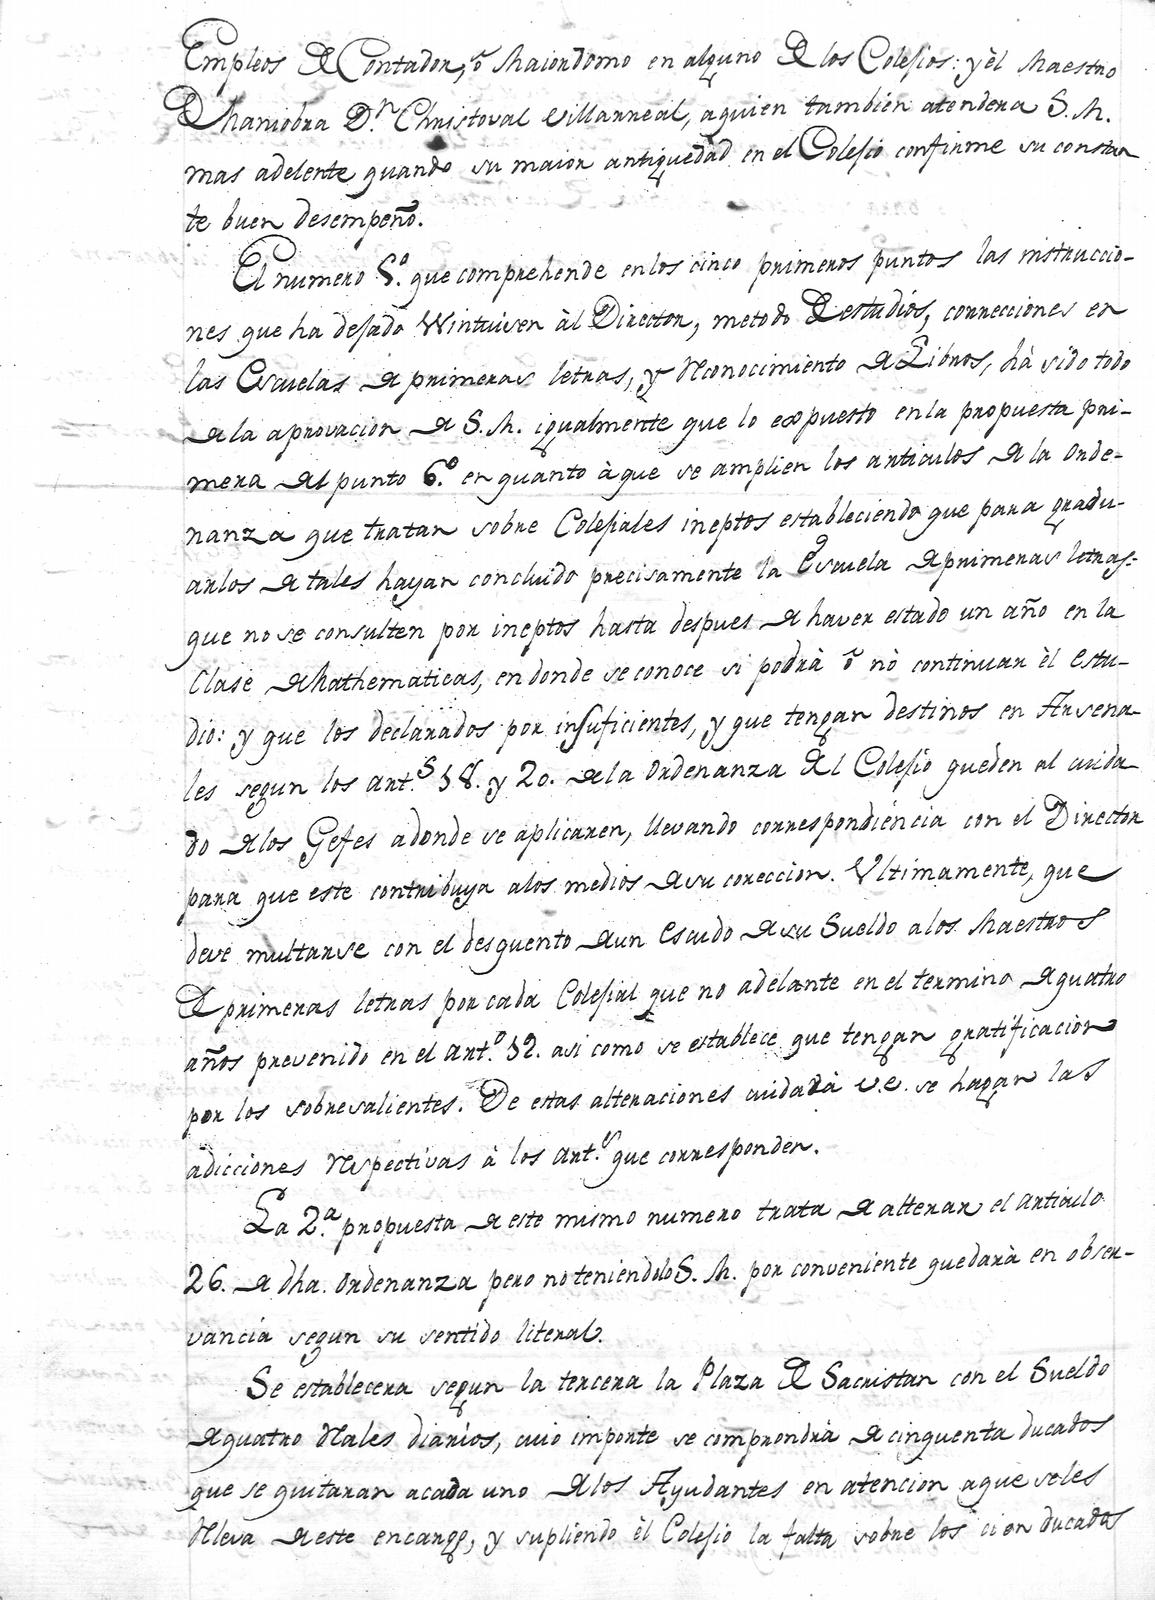 Empleos de Contador, ó Maiordomo en alguno de los Colesios: y èl Maestro
de Maniobra D.n Christoval Villarreal, a quien tambien atenderá S. M.
mas adelente quando su maior antiquedad en el Colesio confirme su constan
te buen desempeño.
El numero 8.º que comprehende en los cinco primeros puntos las instruccio-
nes que ha desado Wintuisen àl Director, metodo de estudios, correcciones en
las Escuelas de primeras letras, y Reconocimiento de Libros, hà sido todo
de la aprovacion de S. M. igualmente que lo expuesto en la propuesta pri-
mera del punto 6.º en quanto à que se amplien los articulos de la Orde-
nanza que tratan sobre Colesiales ineptos estableciendo que para gradu-
arlos de tales hayan concluido precisamente la Escuela de primeras letras:
que no se consulten por ineptos hasta despues de haver estado un año en la
Clase de Mathematicas, en donde se conoce si podrà ó nò continuar èl estu-
dio: y que los declarados por insuficientes, y que tengan destinos en Arsena-
les segun los art.s 18. y 20. de la Ordenanza del Colesio queden al cuida
do de los Gefes adonde se aplicaren, llevando correspondiencia con el Director
para que este contribuya a los medios de su coreccion. Ultimamente, que
deve multarse con el desquento de un escudo de su Sueldo a los Maestros
de primeras letras por cada Colesial que no adelante en el termino de quatro
años prevenido en el art.º 12. asi como se establece que tengan gratificacion
por los sobresalientes. De estas alteraciones cuidarà v.e. se hagan las
adicciones respectivas à los art.s que corresponden.
La 2.a propuesta de este mismo numero trata de alterar el articulo
26. de dha. Ordenanza pero no teniendolo S. M. por conveniente quedarà en obser-
vancia segun su sentido literal.
Se establecera segun la tercera la Plaza de Sacristan con el Sueldo
de quatro Reales diarios, cuio importe se comprondrà de cinquenta ducados
que se quitaran a cada uno de los Ayudantes en atencion a que se les
Releva de este encargo, y supliendo èl Colesio la falta sobre los cien ducados